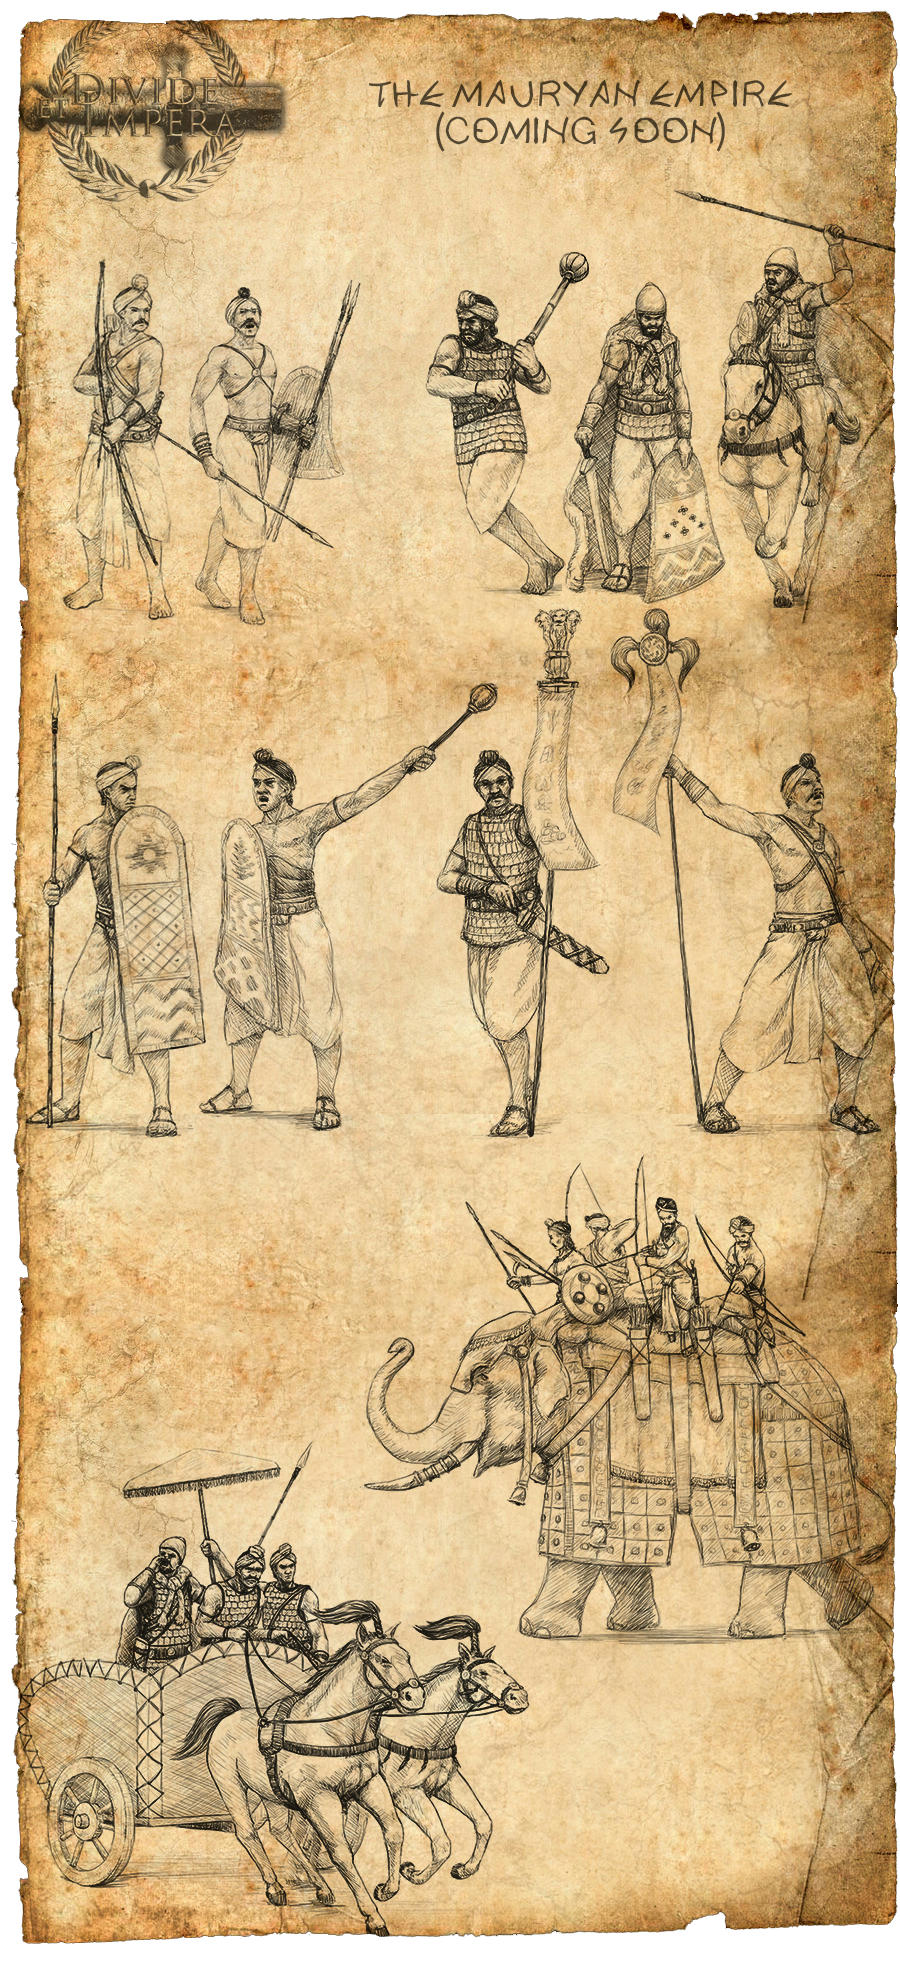 DIVIDE
ET IMPERA
THE MAURYAN EMPIRE
(COMING SOON)